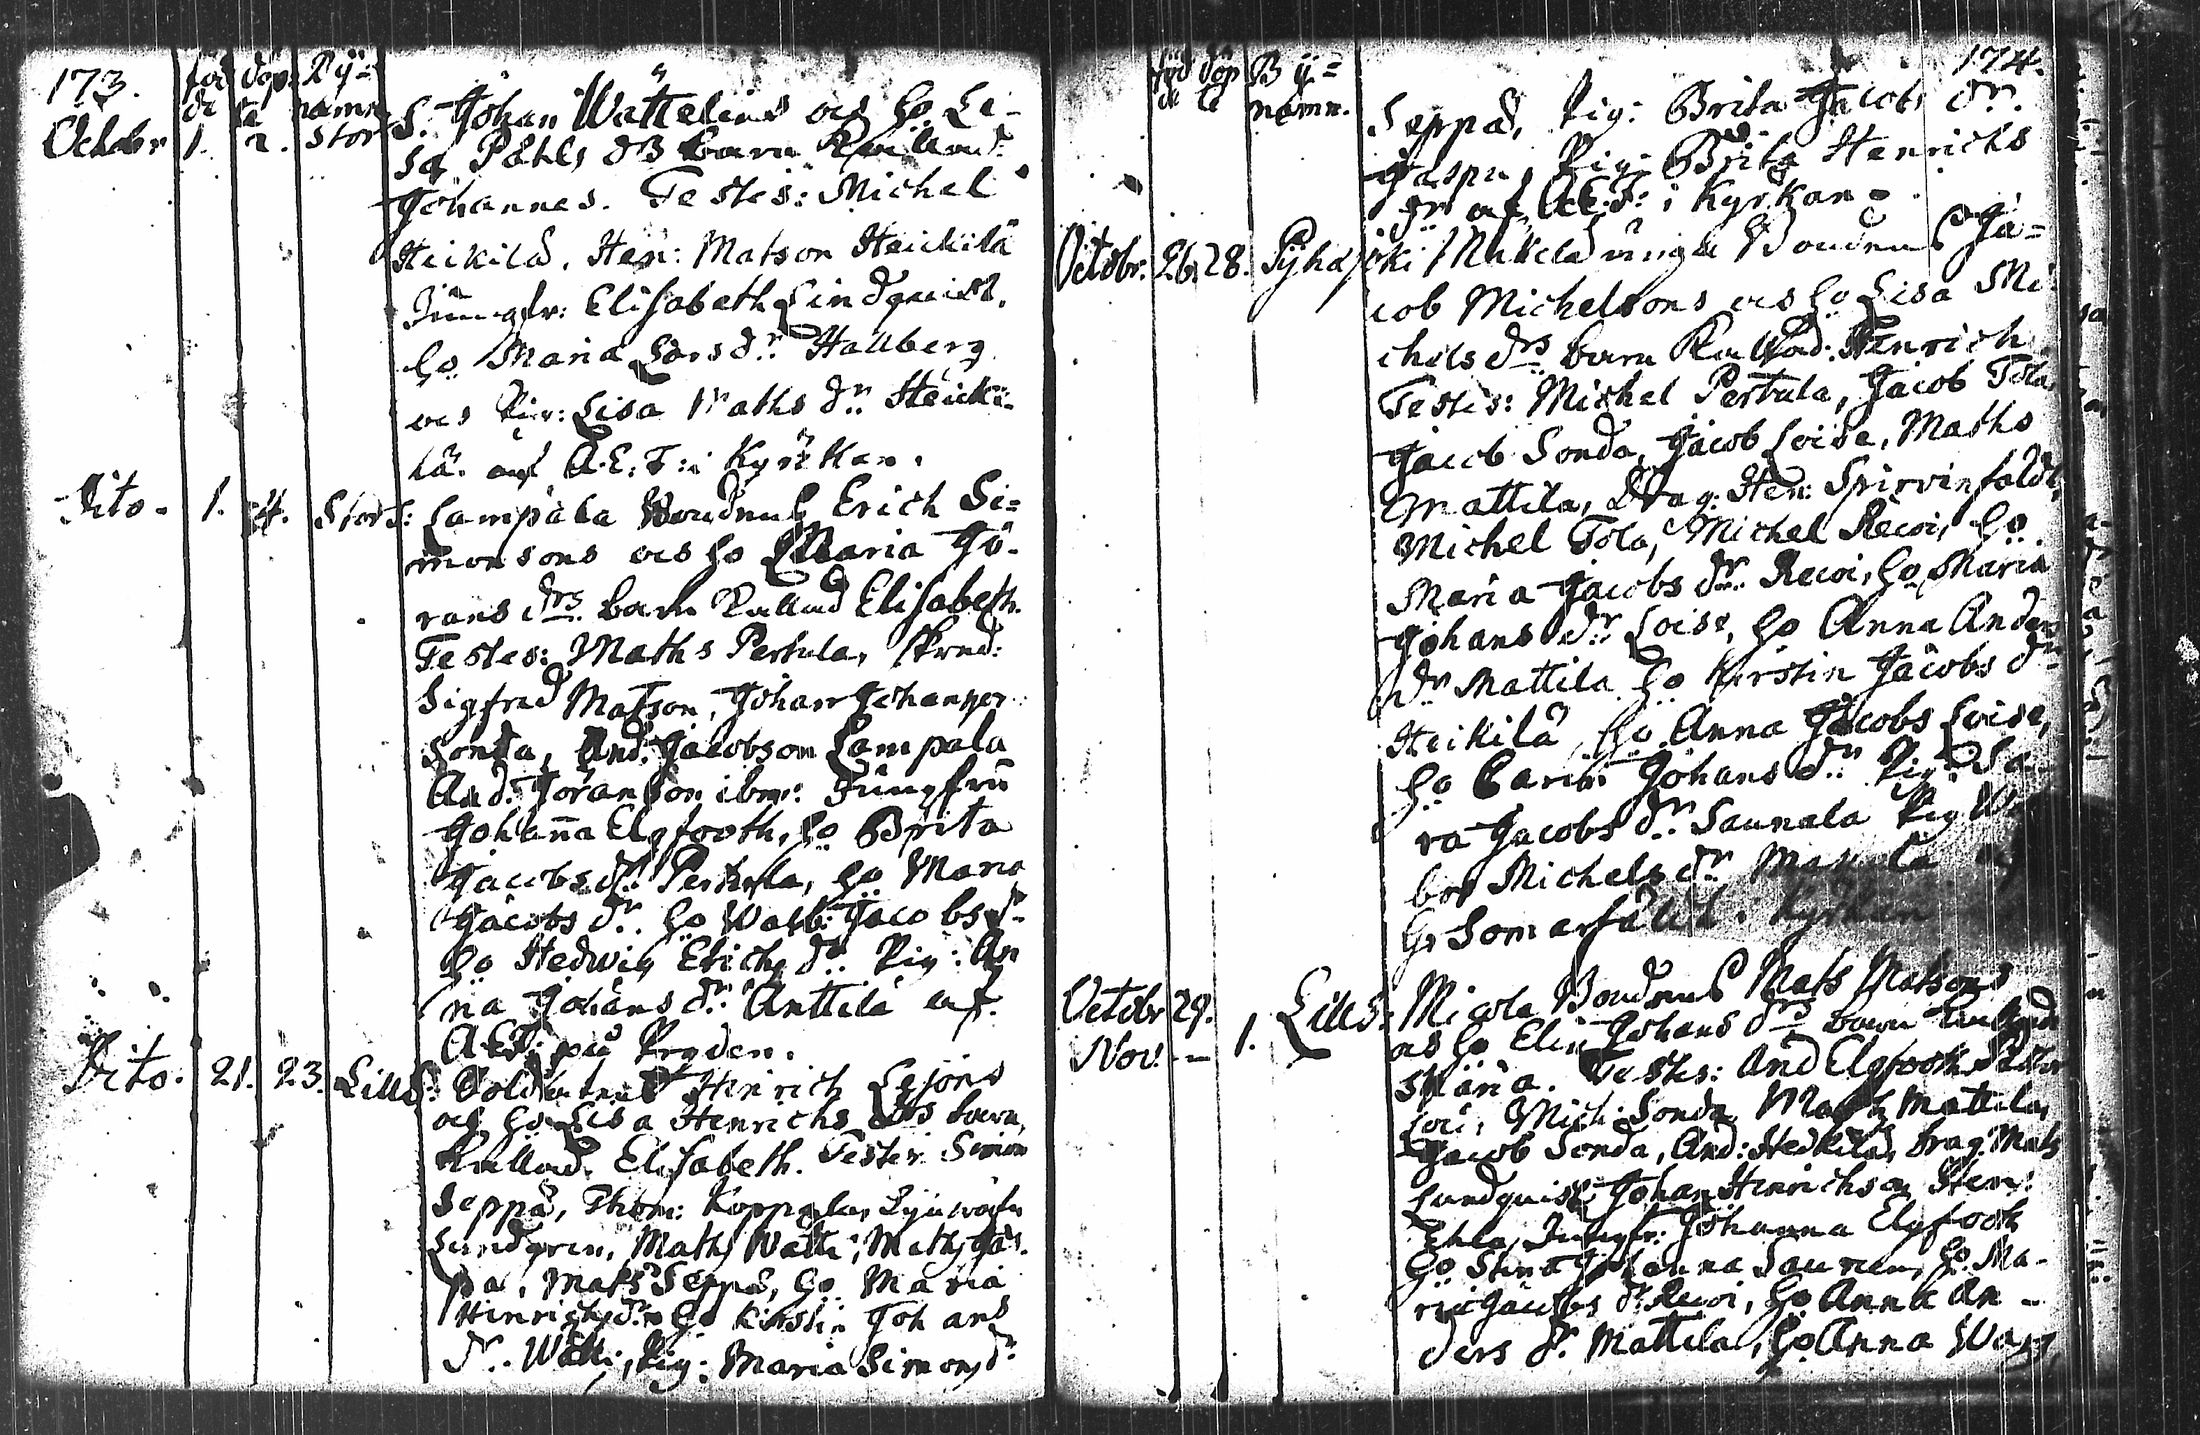 173.
föd dop. By=
de te namn
Octobr 1. 2. Stor S. Johan Wattelins och ho Li-
sa Påhls drs barn Kallad:
Johannes. Testes: Michel
Heikilä, Hen: Matson Heickilä
Jungfr: Elisabeth Lindquist.
ho Maria Lars dr. Hallberg
och Pig: Lisa Maths dr. Heicki-
lä. af A.E.F: i Kyrkan.
Dito. 1. 4. Stor S: Lampåla Bondens Erich Si=
monsons och ho Maria Gö-
rans drs. barn Kallad Elisabeth.
Testes: Maths Pertula,
Sigfred Matson, Johan Johanson
Sonda, And: Jacobson Lampala
And. Göranson ibm: Jungfru
Johanna Elgfooth, ho Brita
Jacobs dr. Pertula, ho Maria
Jacobs dr. ho Walb: Jacobs dr.
ho Hedwig Erichs dr. Pig: An
na Johans dr. Anttila af.
A.E.F: på Pryden.
Dito. 21. 23. Lill S: Soldatens Henrich Lejons
och ho Lisa Henrichs drs barn,
Kallad. Elisabeth. Testes Simon
Seppä, Thom: Koppala,
Lundgren, Maths Watti, Maths Jas.
pa, Mats Seppä, ho Maria
Hinrichs dr. ho Kirstin Johans
dr. Watti, Pig: Maria Simons dr.
174.
föd döp By=
de te namn.
Seppä, Pig: Brita Jacobs dr.
Jaspu, Pig: Brita Henrichs
dr. af A.E.F: i Kyrkan.
Octobr. 26. 28. Pyhäjoki Makelä unga Bondens Ja=
cob Michelsons och ho Lisa Mi
chels drs barn Kallad: Henrich
Testes: Michel Pertula, Jacob Tola
Jacob Sonda, Jacob Loise, Maths
Mattila, Drag: Hen: Spirvinfoldt,
Michel Tola, Michel Rewi, ho
Maria Jacobs dr. Rewi, ho Maria
Johans dr. Loise, ho Anna Anders
dr. Mattila ho Kirstin Jacobs dr.
Heikilä, ho Anna Jacobs Loise,
ho Carin Johans dr. Pig: Sa
ra Jacobs dr. Saunala Pig Wa
bor Michels dr. Makela
Hr Somerfält i Kyrkan
Octobr 29. Lill S: Micola Bondens Mats Matsons
Nov. - 1. och ho Elin Johans drs barn Kallad
Maria. Testes: And Elgfooth,
Loui, Mich: Sonda Maths Mattila,
Jacob Sonda, And: Heikilä, Drag: Mats
Lundquist Johan Henrichson Hen:
Ehla, Jungfr: Johanna Elgfooth
ho Stina Johanna Sauren, ho Ma-
ria Jacobs dr. Rewi, ho Anna An-
ders dr. Mattila, ho Anna